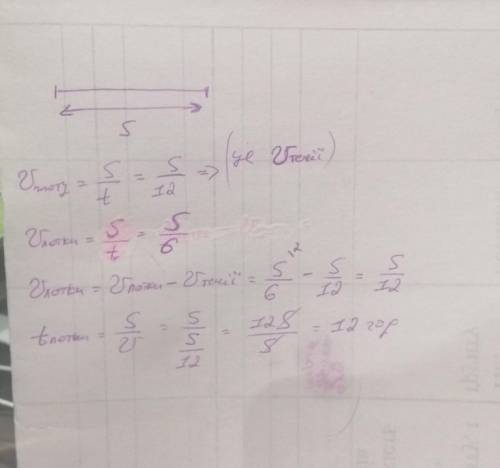 S
Vплоту = S/t = S/12 => (це Vтечії)
Vлотки = S/t = S/6
Vлотки = Vлотки - Vтечії = S/6 ² - S/12 = S/12
tлотки = S/V = S/(S/12) = 12S/S = 12 год